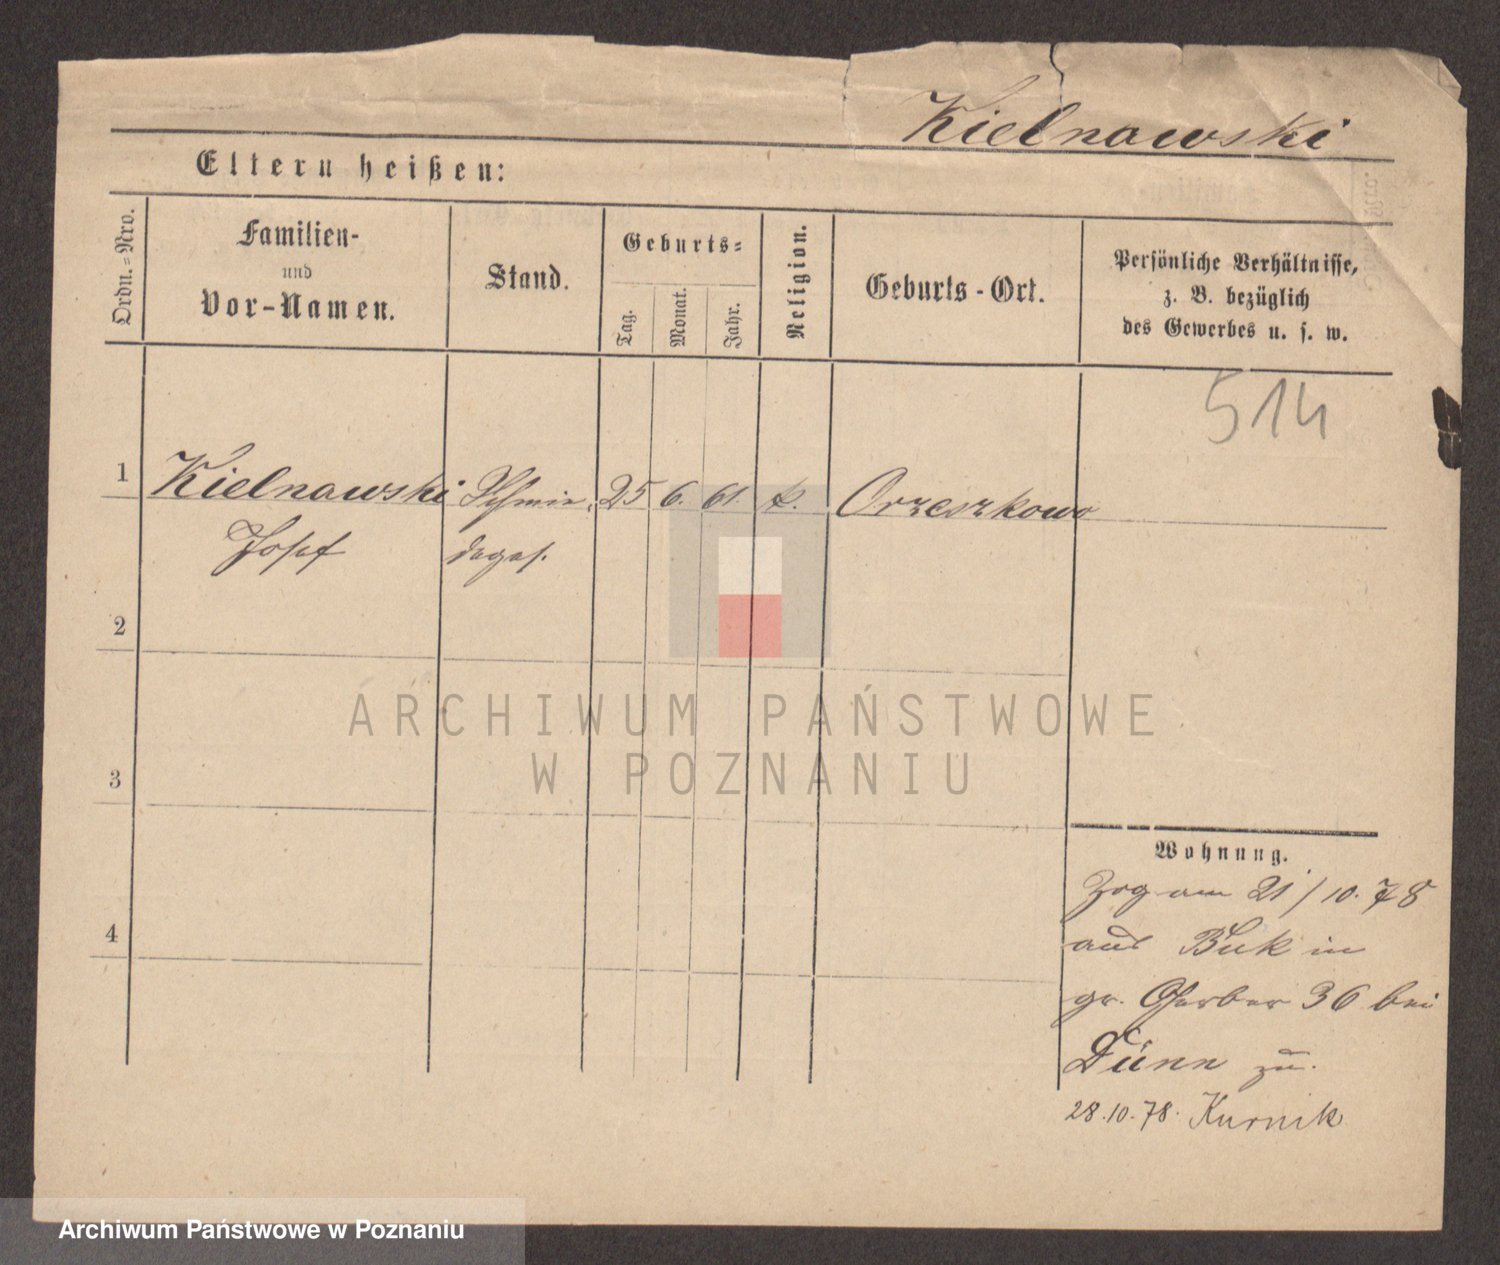 Kielnawski
Eltern heißen:
Ordn.=Nro.
Familien-
und
Vor-Namen.
Stand.
Geburts=
Tag.
Monat.
Jahr.
Religion.
Geburts-Ort.
Persönliche Verhältnisse,
z. B. bezüglich
des Gewerbes u. s. w.
514
1 Kielnawski Schmie- 25 6. 61. k. Orzeszkowo
Josef deges.
2
3
4
Wohnung.
Zog am 21/10. 78
aus Buk in
gr. Gerber 36 bei
Dünn zu.
28.10.78. Kurnik
ARCHIWUM PAŃSTWOWE
W POZNANIU
Archiwum Państwowe w Poznaniu